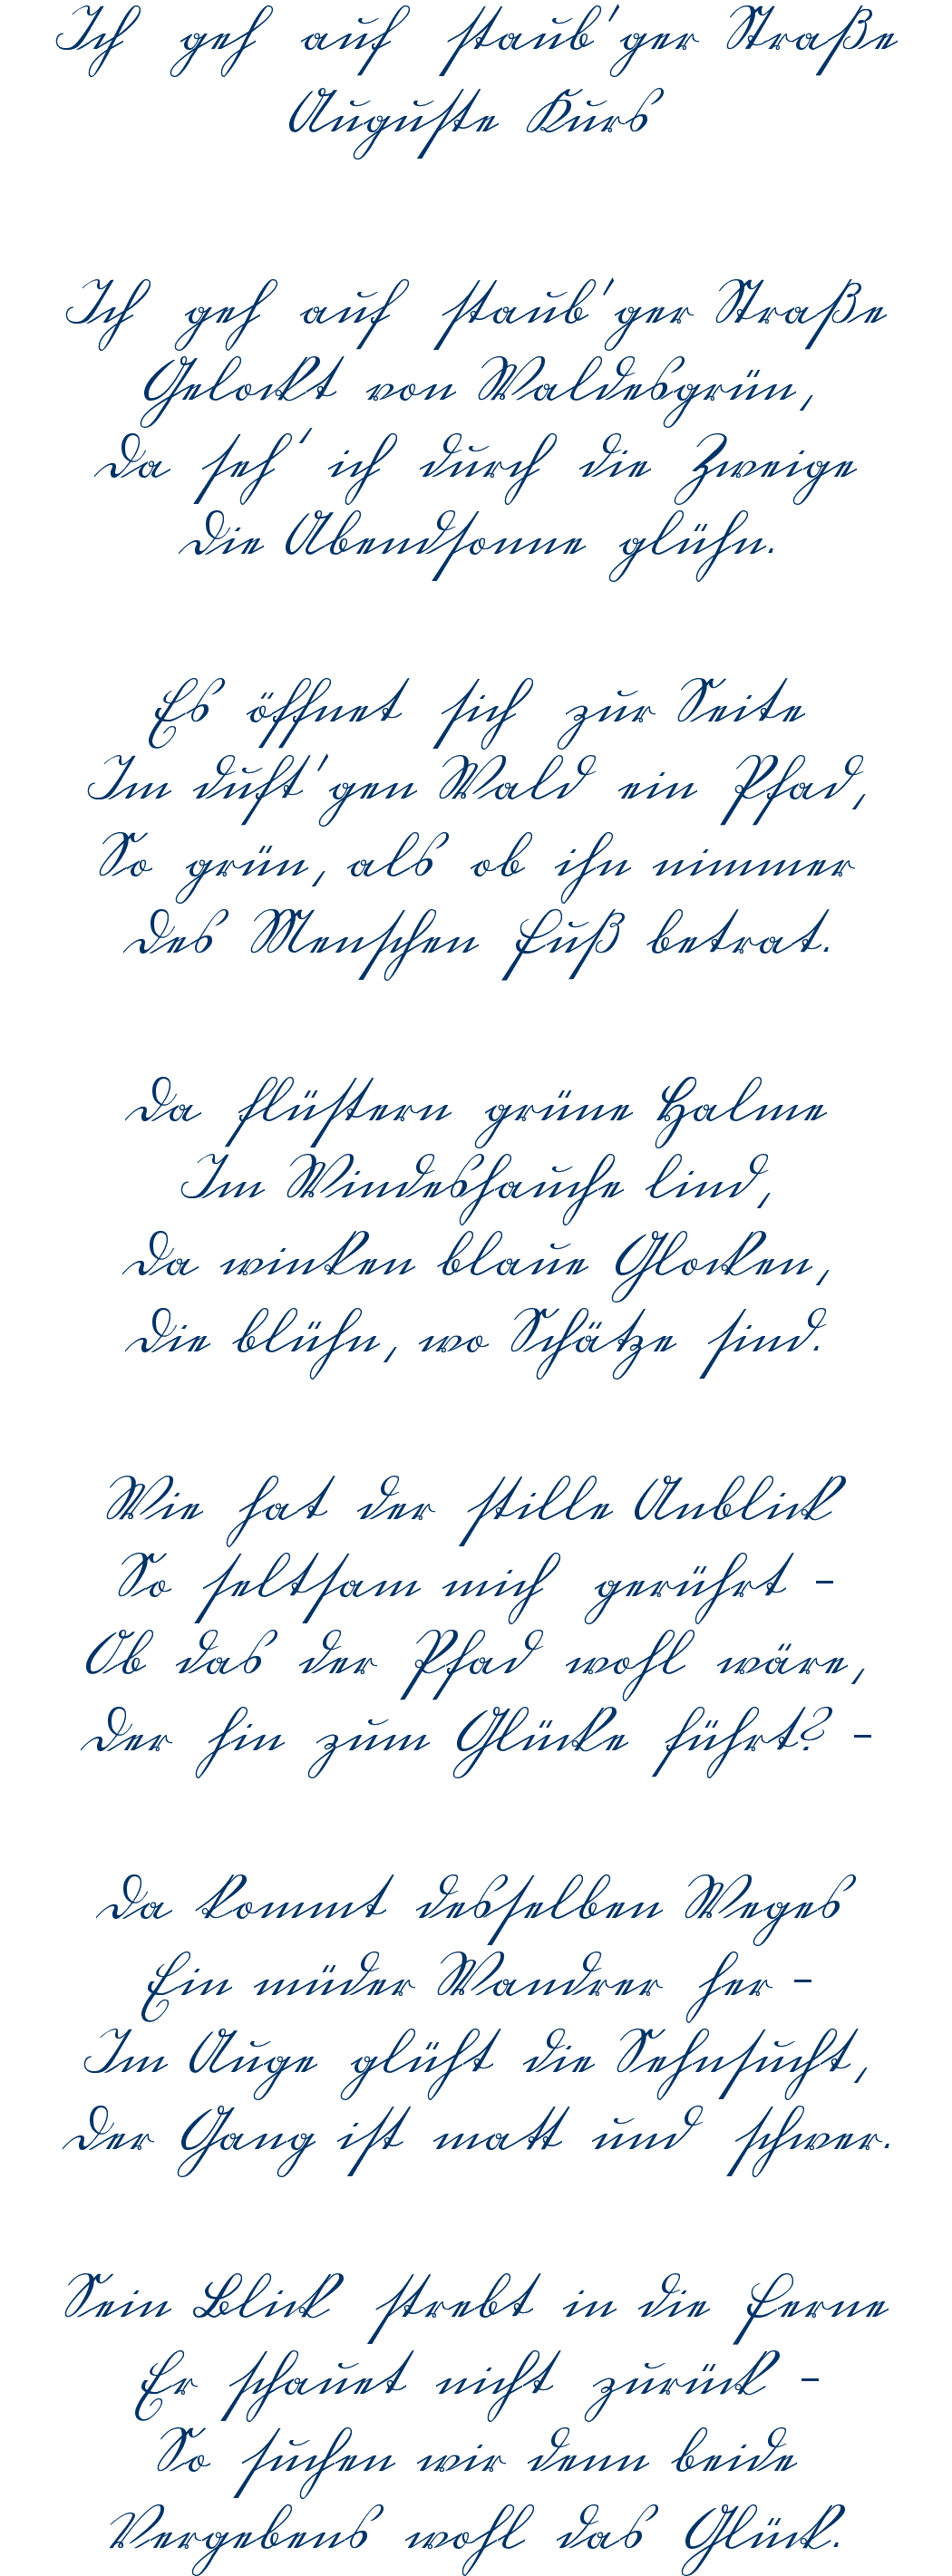 Ich geh auf staub'ger Straße
Auguste Kurs
Ich geh auf staub'ger Straße
Gelockt von Waldesgrün,
Da seh' ich durch die Zweige
Die Abendsonne glühn.
Es öffnet sich zur Seite
Im duft'gen Wald ein Pfad,
So grün, als ob ihn nimmer
Des Menschen Fuß betrat.
Da flüstern grüne Halme
Im Windeshauche lind,
Da winken blaue Glocken,
Die blühn, wo Schätze sind.
Wie hat der stille Anblick
So seltsam mich gerührt -
Ob das der Pfad wohl wäre,
Der hin zum Glücke führt? -
Da kommt desselben Weges
Ein müder Wandrer her -
Im Auge glüht die Sehnsucht,
Der Gang ist matt und schwer.
Sein Blick strebt in die Ferne
Er schauet nicht zurück -
So suchen wir denn beide
Vergebens wohl das Glück.